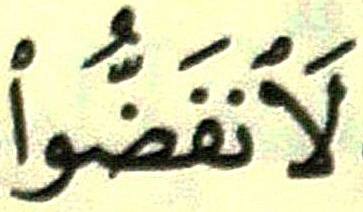 لَانفَضُّواْ